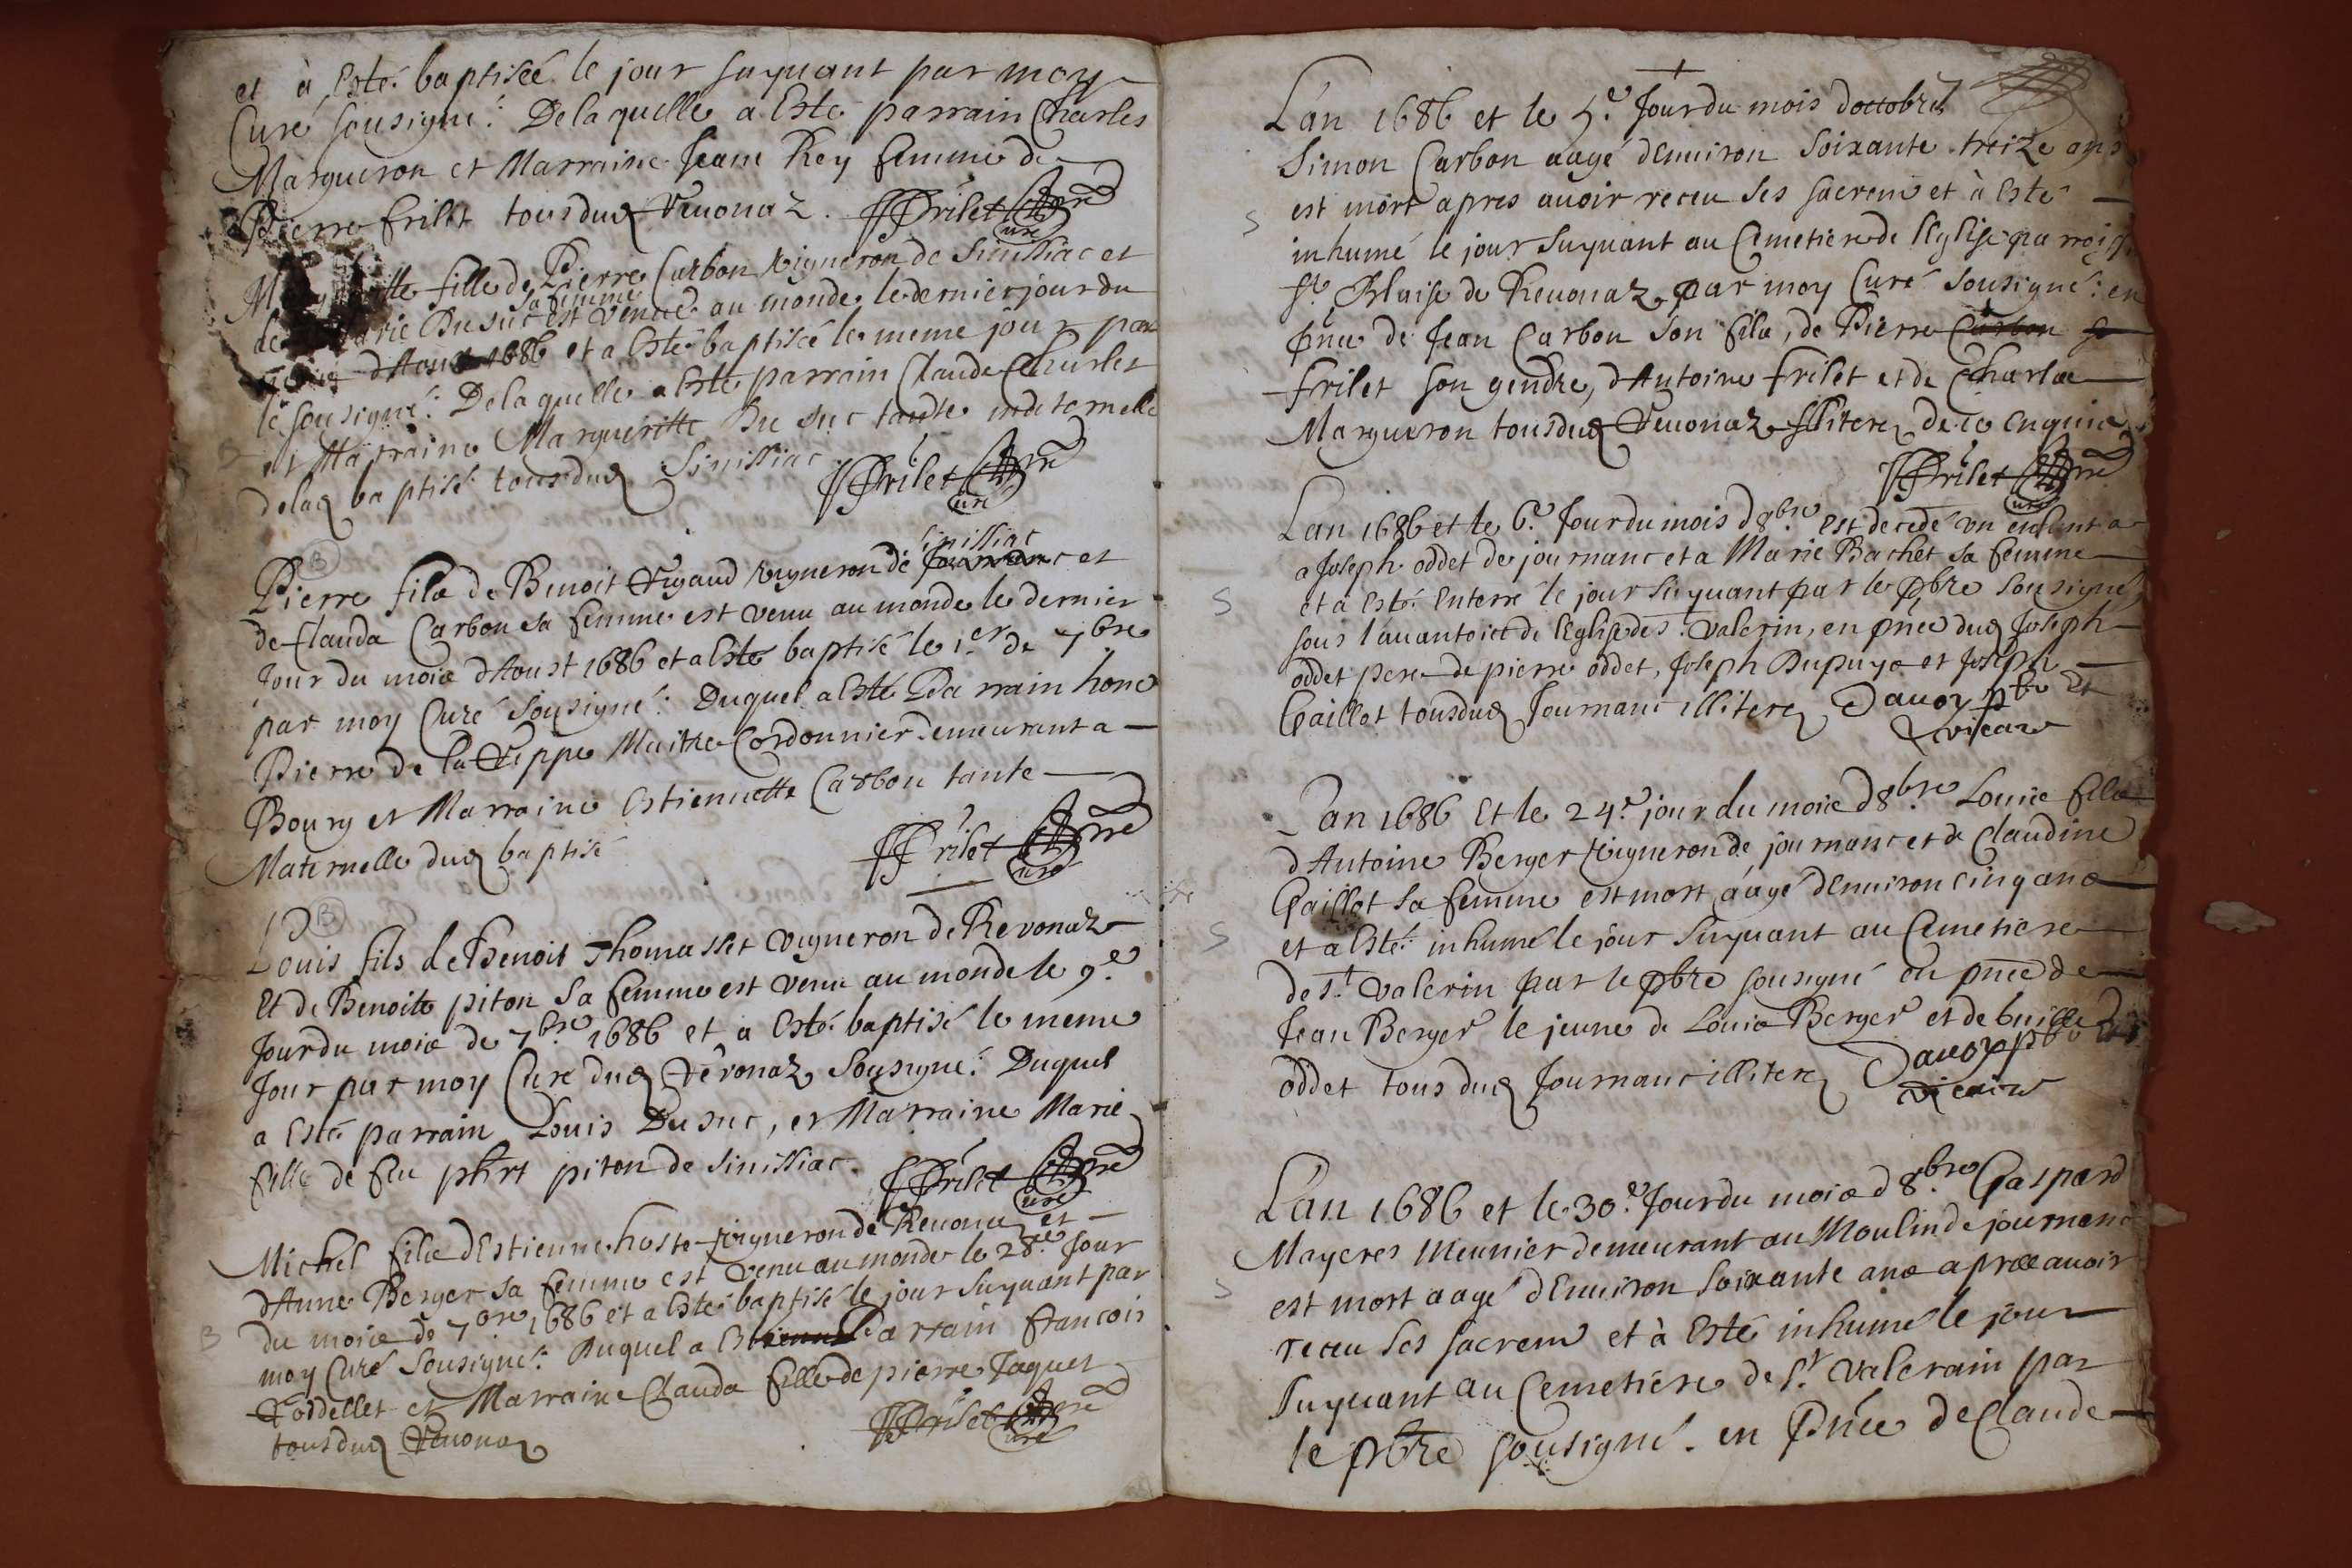 et à Esté baptisée le jour suyuant par moy
Curé sousigné: De laquelle a Esté parrain Charles
Margueron et Marraine Jeane Rey femme de
Pierre frilet tous dud Reuonaz. Frilet Curé
fille de Pierre Carbon vigneron de Sinissiac et
de Marie Du suc sa femme est venue au monde le dernier jour du
d'Aoust 1686 et a Esté baptisée le meme jour par
le sousigné: De laquelle a Esté parrain Claude Charles
et Marraine Margueritte Du suc tante maternelle
de lad baptisé tous dud Sinissiac. Frilet Curé
B
Pierre fils de Benoit Rigaud vigneron de Journanc Sinissiac et
de Clauda Carbon sa femme est venu au monde le dernier
Jour du mois d'Aoust 1686 et a Esté baptisé le 1.er de 7bre
par moy Curé Sousigné: Duquel a Esté Parrain hone
Pierre de la Teppe Maitre Cordonnier demeurant a
Bourg et Marraine Estiennette Carbon tante
Maternelle dud baptisé Frilet Curé
B
Louis fils de Benoit Thomasset vigneron de Revonaz
Et de Benoite piton sa femme est venu au monde le 9.e
Jour du mois de 7bre 1686 et a Esté baptisé le meme
Jour par moy Curé dud Revonaz Sousigné: Duquel
a Esté parrain Louis Du suc, et Marraine Marie
fille de feu phrt piton de Sinissiac. Frilet Curé
Michel fils d'Estienne hoste vigneron de Reuonaz et
d'Anne Berger sa femme est venu au monde le 28.e Jour
B du mois de 7bre 1686 et a Esté baptisé le jour suyuant par
moy Curé Sousigné: Duquel a Esté Parrain francois
et Marraine Clauda fille de pierre Jaquet
tous dud Reuonaz Frilet Curé
L'an 1686 et le 5.e Jour du mois d'octobre
Simon Carbon aagé d'Enuiron soixante treize ans
S est mort apres auoir receu ses sacrem et à Esté
inhumé le jour suyuant au Cemetiere de l'Eglise parroiss
St Blaise de Reuonaz par moy Curé sousigné: en
pñce de Jean Carbon son fils, de Pierre Carbon
frilet son gendre, d'Antoine frilet et de Charles
Margueron tous dud Reuonaz illiterez de ce enquis
Frilet Curé
Lan 1686 et le 6.e Jour du mois d8bre est decedé un enfant a
a Joseph oddet de journanc et a Marie Bachet sa femme
S et a Esté Enterré le jour suyuant par le pbre sousigné
sous l'auantoict de l'Eglise de St. Valerin, en pñce dud Joseph
oddet pere de pierre oddet, Joseph Dupuys et Joseph
Gaillot tous dud Journanc illiterez Dauoy pbre et
vicaire
Lan 1686 Et le 24.e jour du mois d8bre Louis fils
d'Antoine Berger vigneron de journanc et de Claudine
Gaillot sa femme est mort aagé d'Enuiron Cinq ans
S et a Esté inhumé le jour suyuant au Cemetiere
de St. Valerin par le pbre sousigné en pñce de
Jean Berger le jeune de Louis Berger et de
oddet tous dud Journanc illiterez Dauoy pbre et
vicaire
L'an 1686 et le 30.e Jour du mois d8bre Gaspard
Mayeres Meunier demeurant au Moulin de journanc
S est mort aagé d'Enuiron soixante ans apres auoir
receu ses sacrem et à Esté inhumé le jour
suyuant au Cemetiere de St. Valerain par
le pbre sousigné. en pñce de Claude